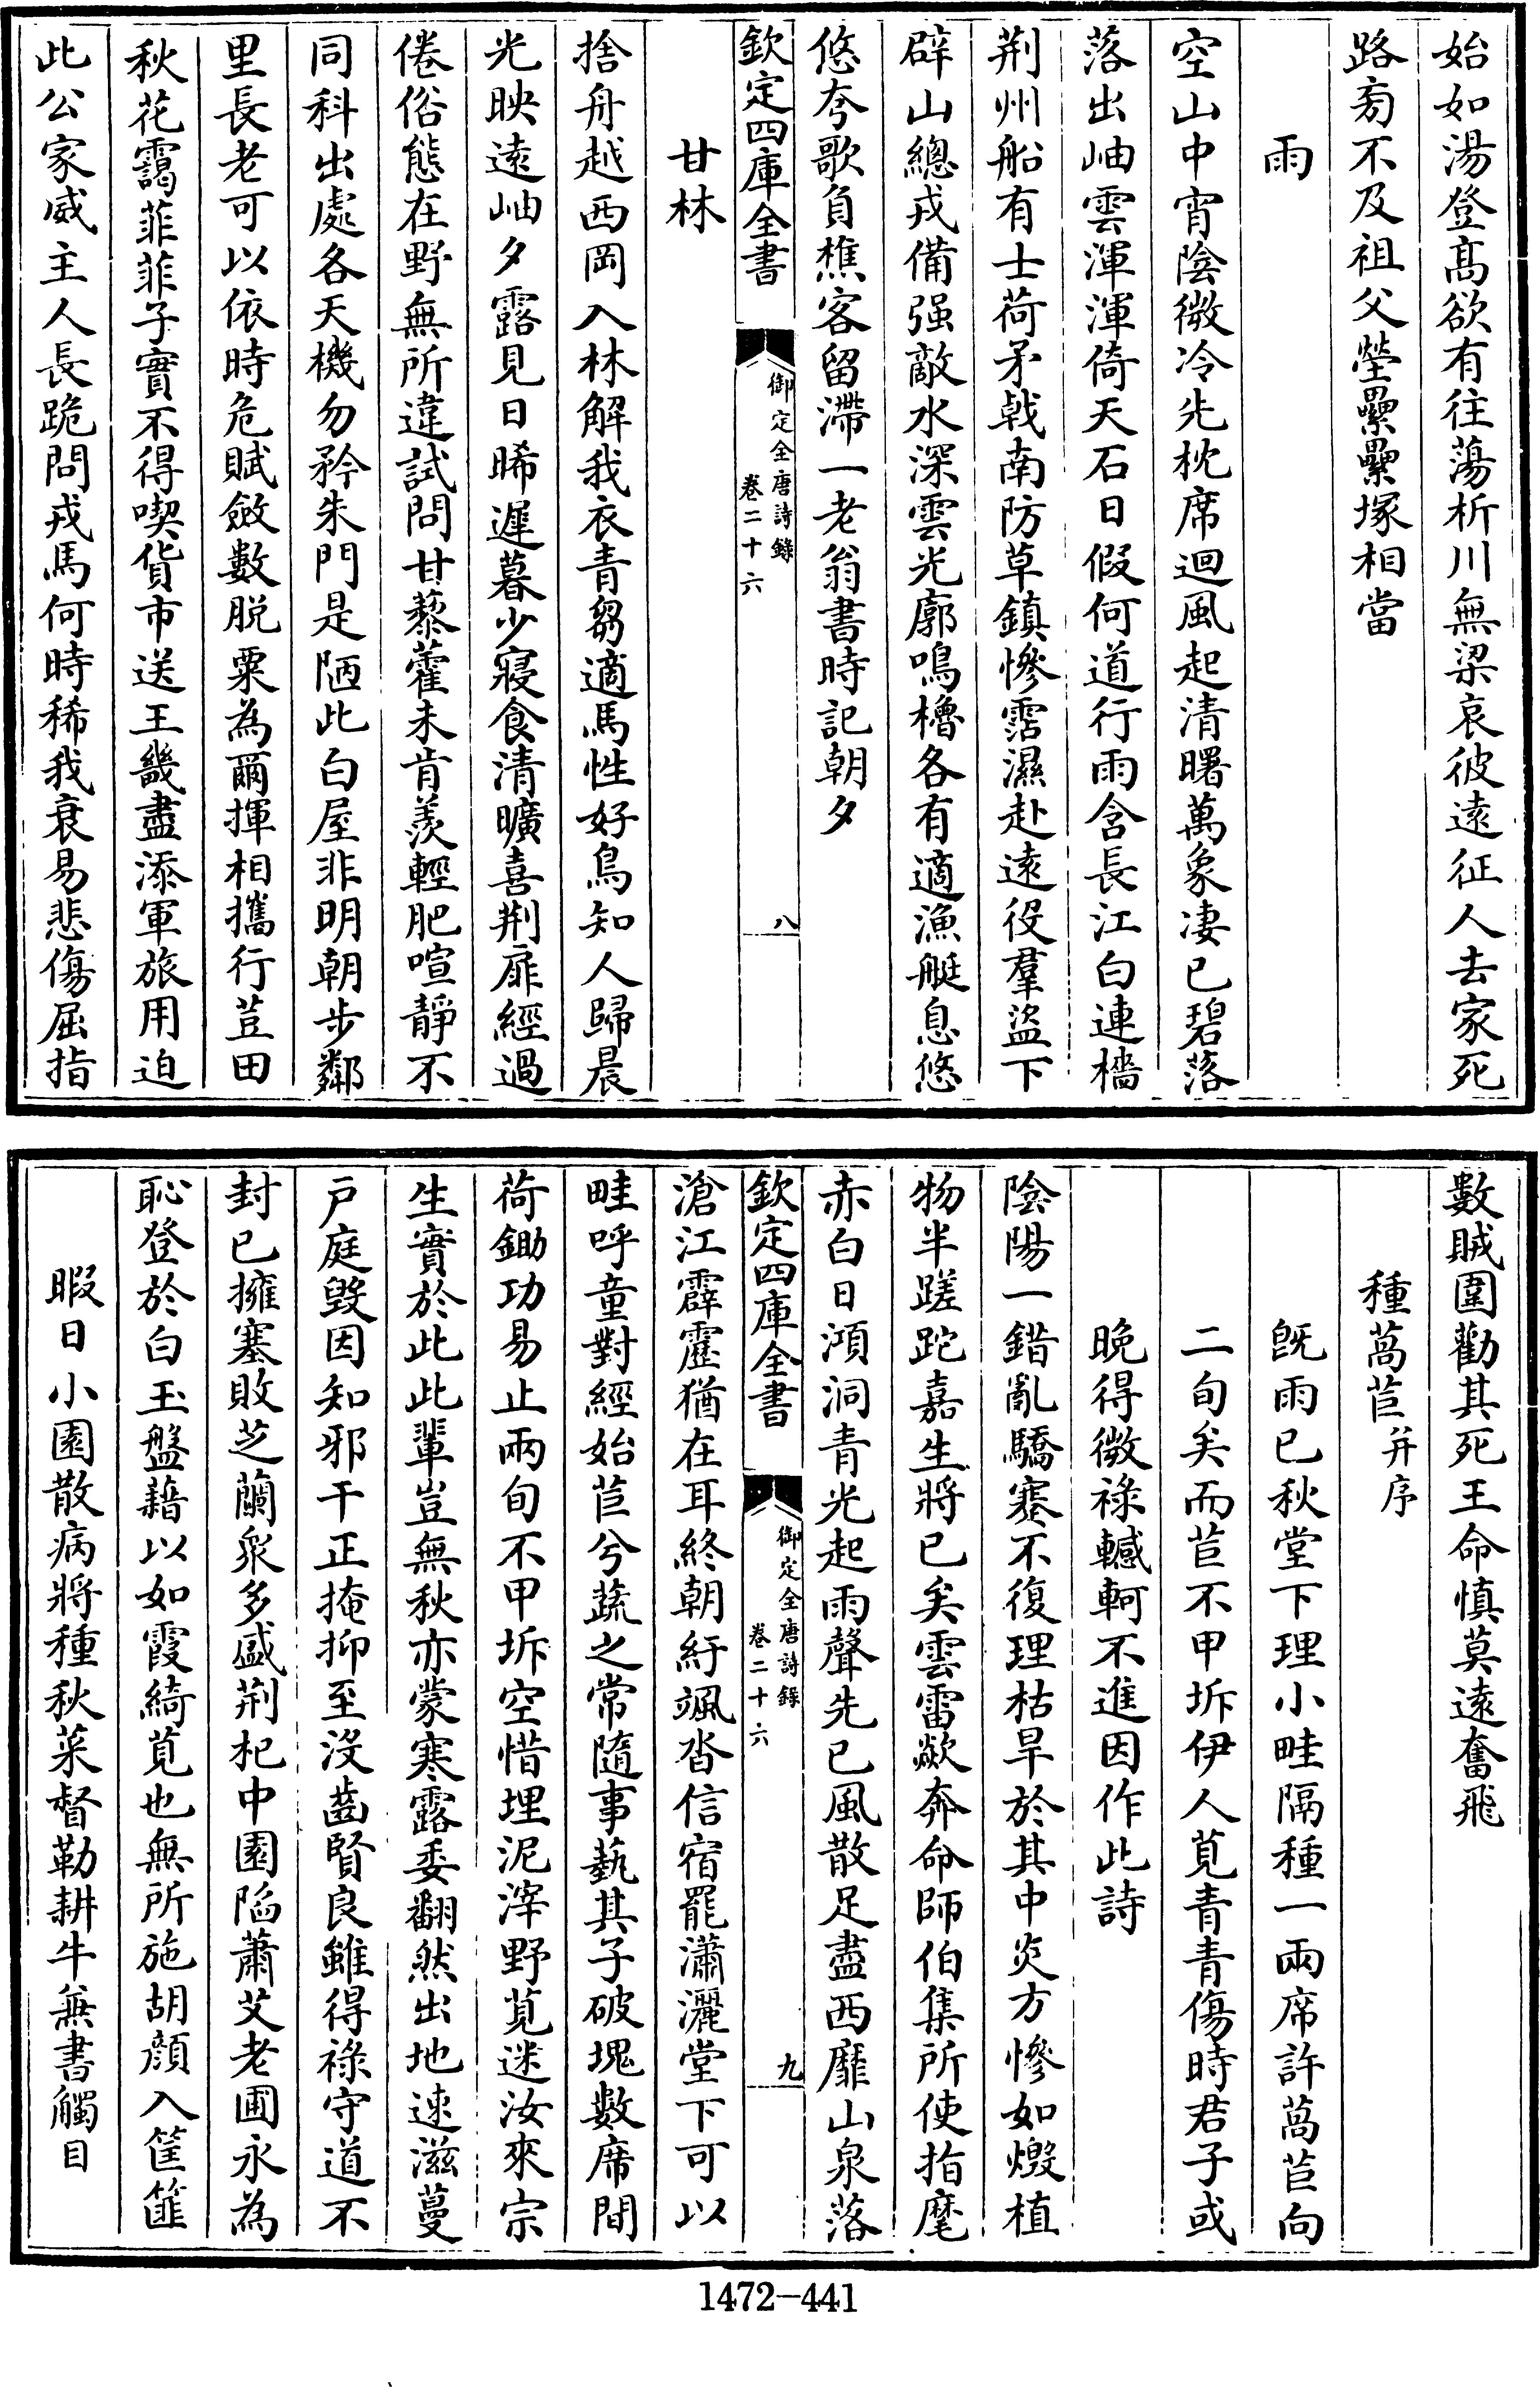 始如湯登髙欲有往蕩析川無梁哀彼逺征人去家死
路㫄不及祖父塋纍纍塚相當
雨
空山中宵隂微冷先枕席迴風起清曙萬象凄已碧落
落出岫雲渾渾倚天石日假何道行雨含長江白連檣
荆州船有士荷矛㦸南防草鎮慘霑濕赴逺役羣盗下
辟山總戎備强敵水深雲光廓鳴櫓各有適漁艇息悠
悠夸歌負樵客留滯一老翁書時記朝夕
欽定四庫全書
御定全唐詩錄
卷二十六
八
甘林
捨舟越西岡入林解我衣青芻適馬性好鳥知人歸晨
光映逺岫夕露見日晞遲暮少寢食清曠喜荆扉經過
倦俗態在野無所違試問甘藜藿未肯羡輕肥喧靜不
同科出處各天機勿矜朱門是陋此白屋非明朝步鄰
里長老可以依時危賦斂數脱粟為爾揮相攜行荳田
秋花靄菲菲子實不得喫貨市送王畿盡添軍旅用迫
此公家威主人長跪問戎馬何時稀我衰易悲傷屈指
數賊圍勸其死王命慎莫逺奮飛
種萵苣并序
旣雨已秋堂下理小畦隔種一兩席許萵苣向
二旬矣而苣不甲坼伊人莧青青傷時君子或
晚得微祿轗軻不進因作此詩
隂陽一錯亂驕蹇不復理枯旱於其中炎方慘如燬植
物半蹉跎嘉生將已矣雲雷歘奔命師伯集所使指麾
赤白日澒洞青光起雨聲先已風散足盡西靡山泉落
欽定四庫全書
御定全唐詩錄
卷二十六
九
滄江霹靂猶在耳終朝紆颯沓信宿罷瀟灑堂下可以
畦呼童對經始苣兮蔬之常隨事蓺其子破塊數席間
荷鋤功易止兩旬不甲坼空惜埋泥滓野莧迷汝來宗
生實於此此輩豈無秋亦蒙寒露委翻然出地速滋蔓
戸庭毁因知邪干正掩抑至没齒賢良雖得祿守道不
封已擁塞敗芝蘭衆多盛荆杞中園陷蕭艾老圃永為
恥登於白玉盤藉以如霞綺莧也無所施胡顔入筐篚
暇日小園散病將種秋菜督勒耕牛兼書觸目
1472-441